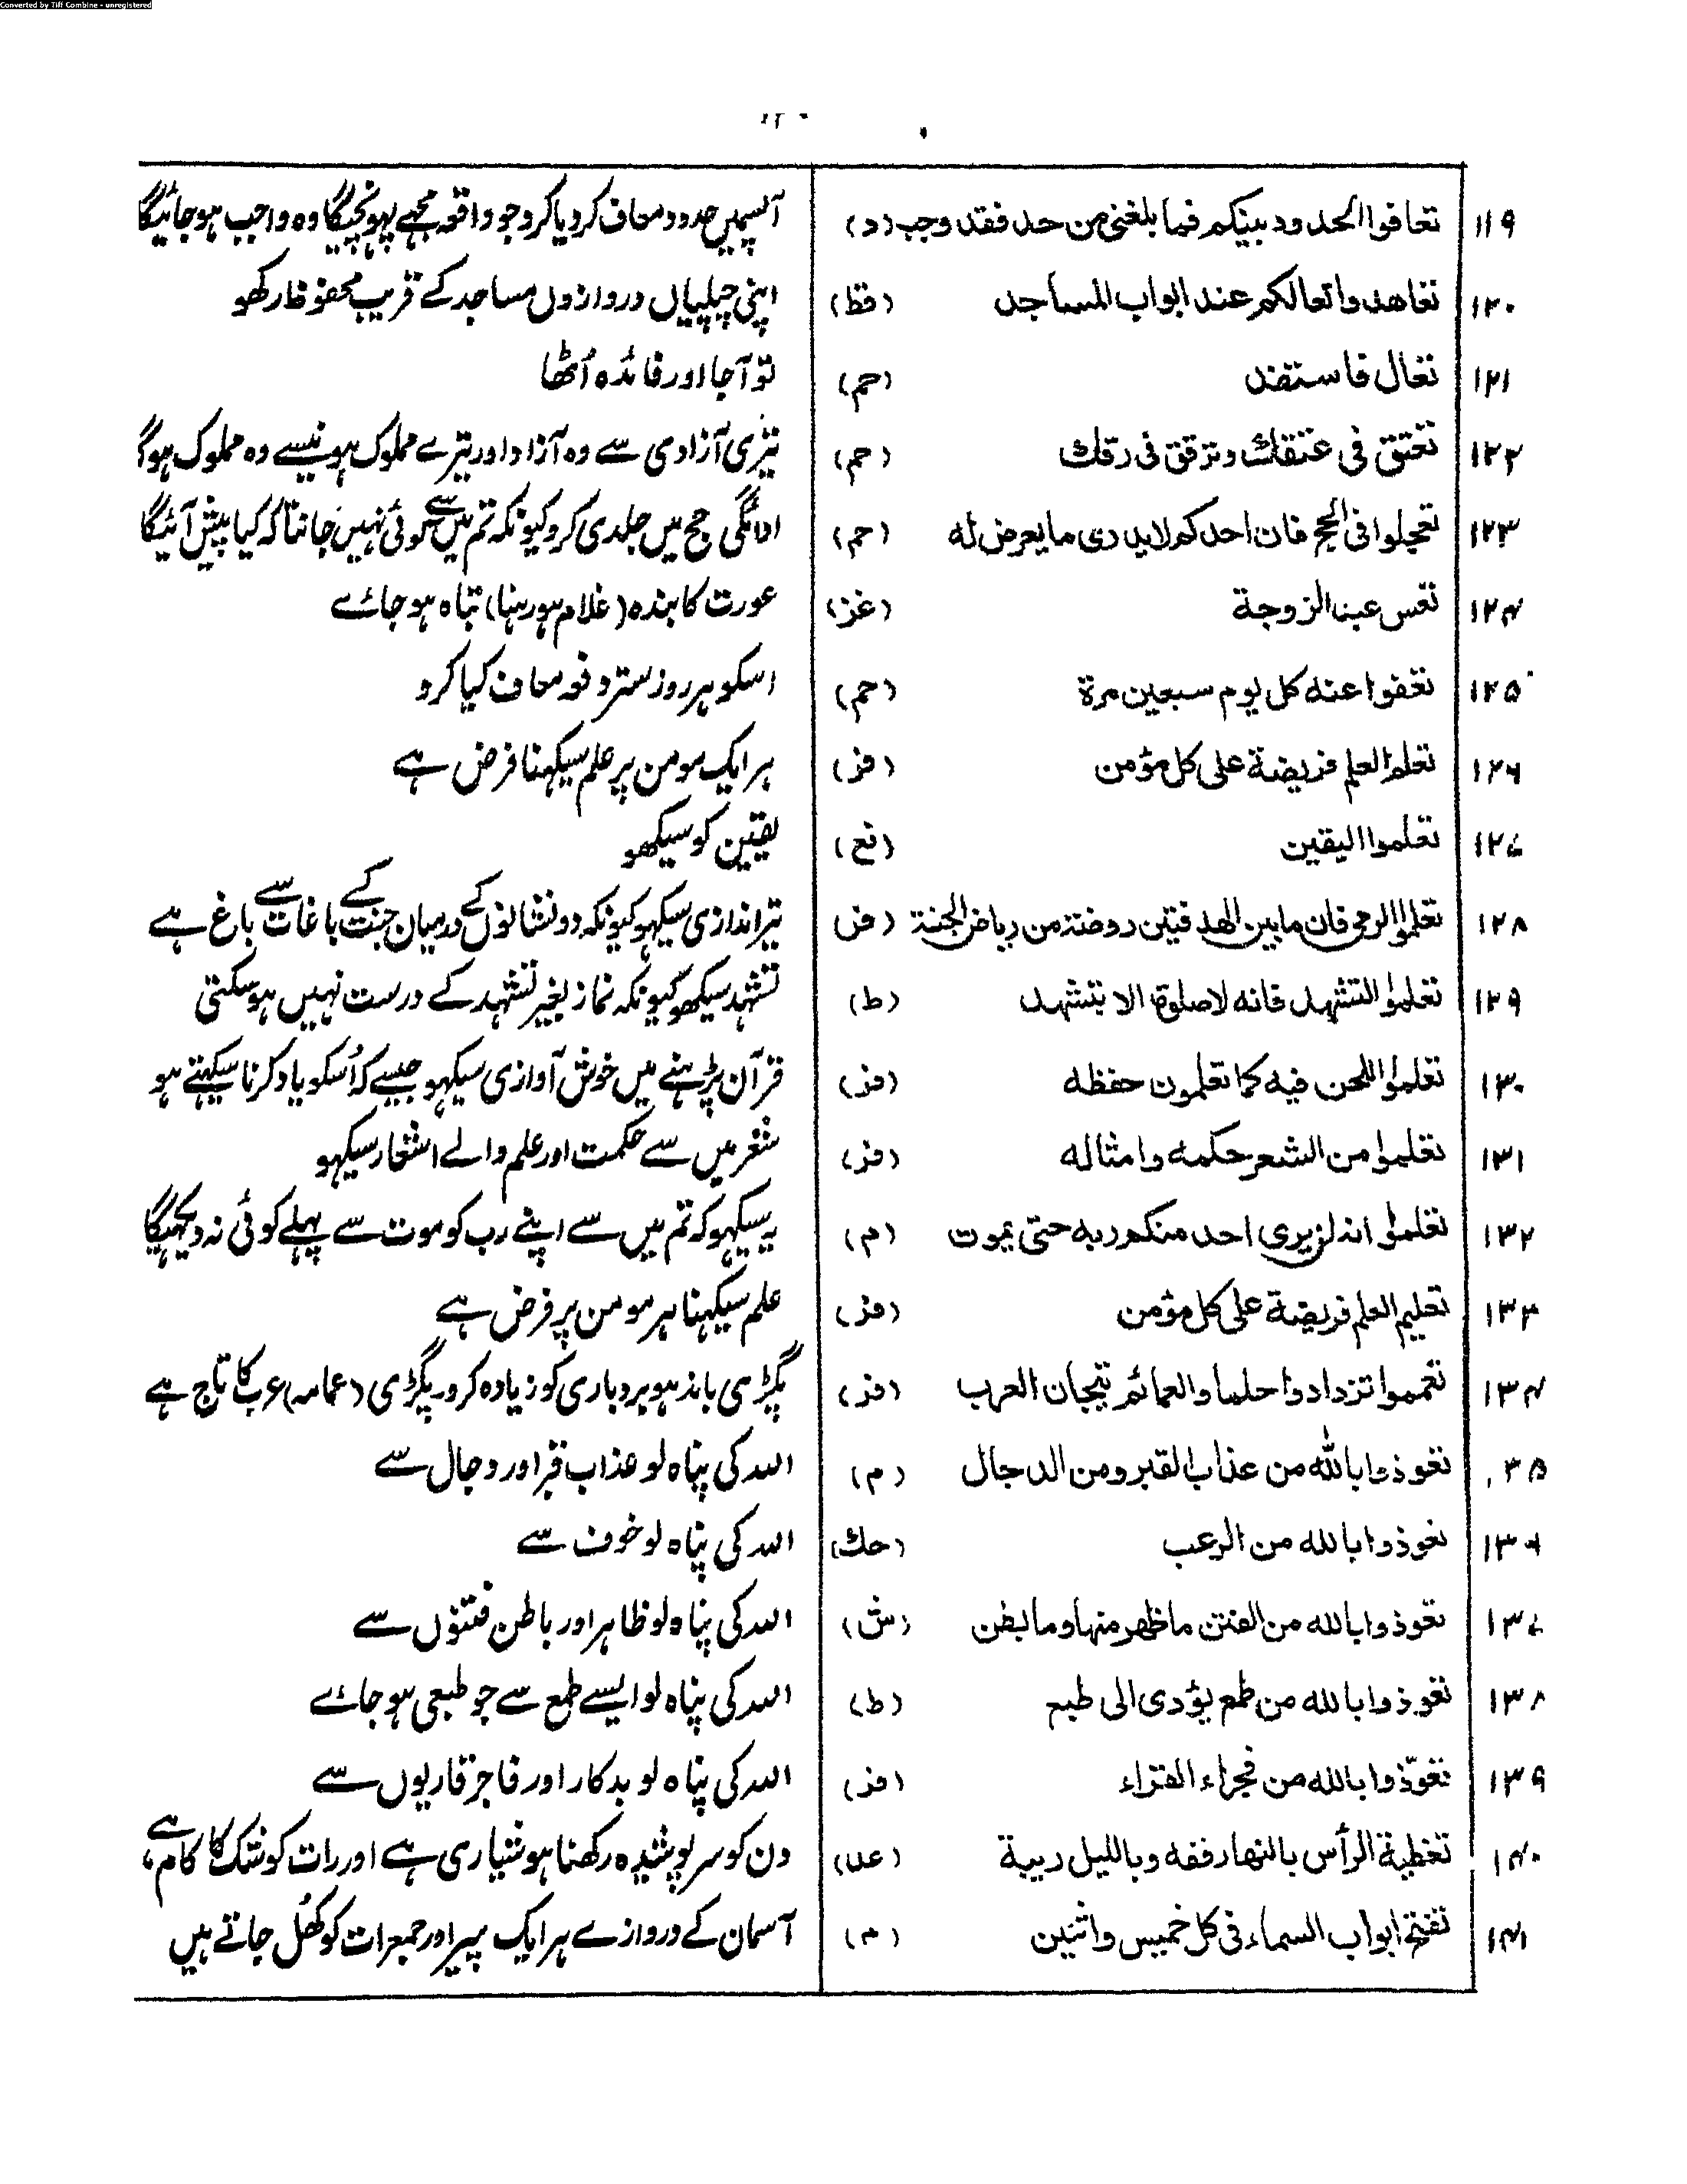 Converted by Tiff Combine - unregistered
۱۱۹ تعافوا الحدود بینکم فما بلغنی من حد فقد وجب (د) آپسمیں حدود معاف کر دیا کرو جو واقعہ مجہے پہونچیگا وہ واجب ہو جائیگا
۱۲۰ تعاهدوا نعالکم عند ابواب المساجد (قط) اپنی چپلیاں دروازوں مساجد کے قریب محفوظ رکھو
۱۲۱ تعال فاستقد (حم) تو آجا اور فائدہ اُٹھا
۱۲۲ تعتق فی عتقك وترقق فی رقك (حم) تیری آزادی سے وہ آزاد اور تیرے مملوک ہونیسے وہ مملوک ہوگا
۱۲۳ تعجلوا فی الحج فان احدکم لا یدری ما یعرض له (حم) ادائگی حج میں جلدی کرو کیونکہ تم میں سے کوئی نہیں جانتا کہ کیا پیش آئیگا
۱۲۴ تعس عبد الزوجة (غز) عورت کا بندہ (غلام ہو رہنا) تباہ ہو جائے
۱۲۵ تعفوا عنه کل یوم سبعین مرة (حم) اسکو ہر روز ستر دفعہ معاف کیا کرو
۱۲۶ تعلم العلم فریضة علی کل مؤمن (فر) ہر ایک مومن پر علم سیکہنا فرض ہے
۱۲۷ تعلموا الیقین (نع) یقین کو سیکھو
۱۲۸ تعلموا الرمی فان ما بین الهدفتین روضة من ریاض الجنة (فر) تیر اندازی سیکہو کیونکہ دو نشانوں کے درمیان جنت کے باغات سے باغ ہے
۱۲۹ تعلموا التشهد فانه لا صلوة الا بتشهد (ط) تشہد سیکھو کیونکہ نماز بغیر تشہد کے درست نہیں ہو سکتی
۱۳۰ تعلموا اللحن فیه کما تعلمون حفظه (فر) قرآن پڑہنے میں خوش آوازی سیکہو جیسے کہ اُسکو یاد کرنا سیکہتے ہو
۱۳۱ تعلموا من الشعر حکمه وامثاله (فر) شعر میں سے حکمت اور علم والے اشعار سیکہو
۱۳۲ تعلموا انه لن یری احد منکم ربه حتی یموت (م) یہ سیکہو کہ تم میں سے اپنے رب کو موت سے پہلے کوئی نہ دیکہیگا
۱۳۳ تعلیم العلم فریضة علی کل مؤمن (فر) علم سیکہنا ہر مومن پر فرض ہے
۱۳۴ تعمموا تزدادوا حلما والعمائم تیجان العرب (فر) پگڑی باندہو بردباری کو زیادہ کرو۔ پگڑی (عمامہ) عرب کا تاج ہے
۱۳۵ تعوذوا بالله من عذاب القبر ومن الدجال (م) اللہ کی پناہ لو عذاب قبر اور دجال سے
۱۳۶ تعوذوا بالله من الرعب (حك) اللہ کی پناہ لو خوف سے
۱۳۷ تعوذوا بالله من الفتن ما ظهر منها وما بطن (ش) اللہ کی پناہ لو ظاہر اور باطن فتنوں سے
۱۳۸ تعوذوا بالله من طمع یؤدی الی طبع (ط) اللہ کی پناہ لو ایسے طمع سے جو طبعی ہو جائے
۱۳۹ تعوّذوا بالله من فجراء القراء (فر) اللہ کی پناہ لو بدکار اور فاجر قاریوں سے
۱۴۰ تغطیة الرأس بالنهار فقه وباللیل ریبة (عد) دن کو سر پوشیدہ رکھنا ہوشیاری ہے اور رات کو شک کا کام ہے
۱۴۱ تفتح ابواب السماء فی کل خمیس واثنین (م) آسمان کے دروازے ہر ایک پیر اور جمعرات کو کھل جاتے ہیں